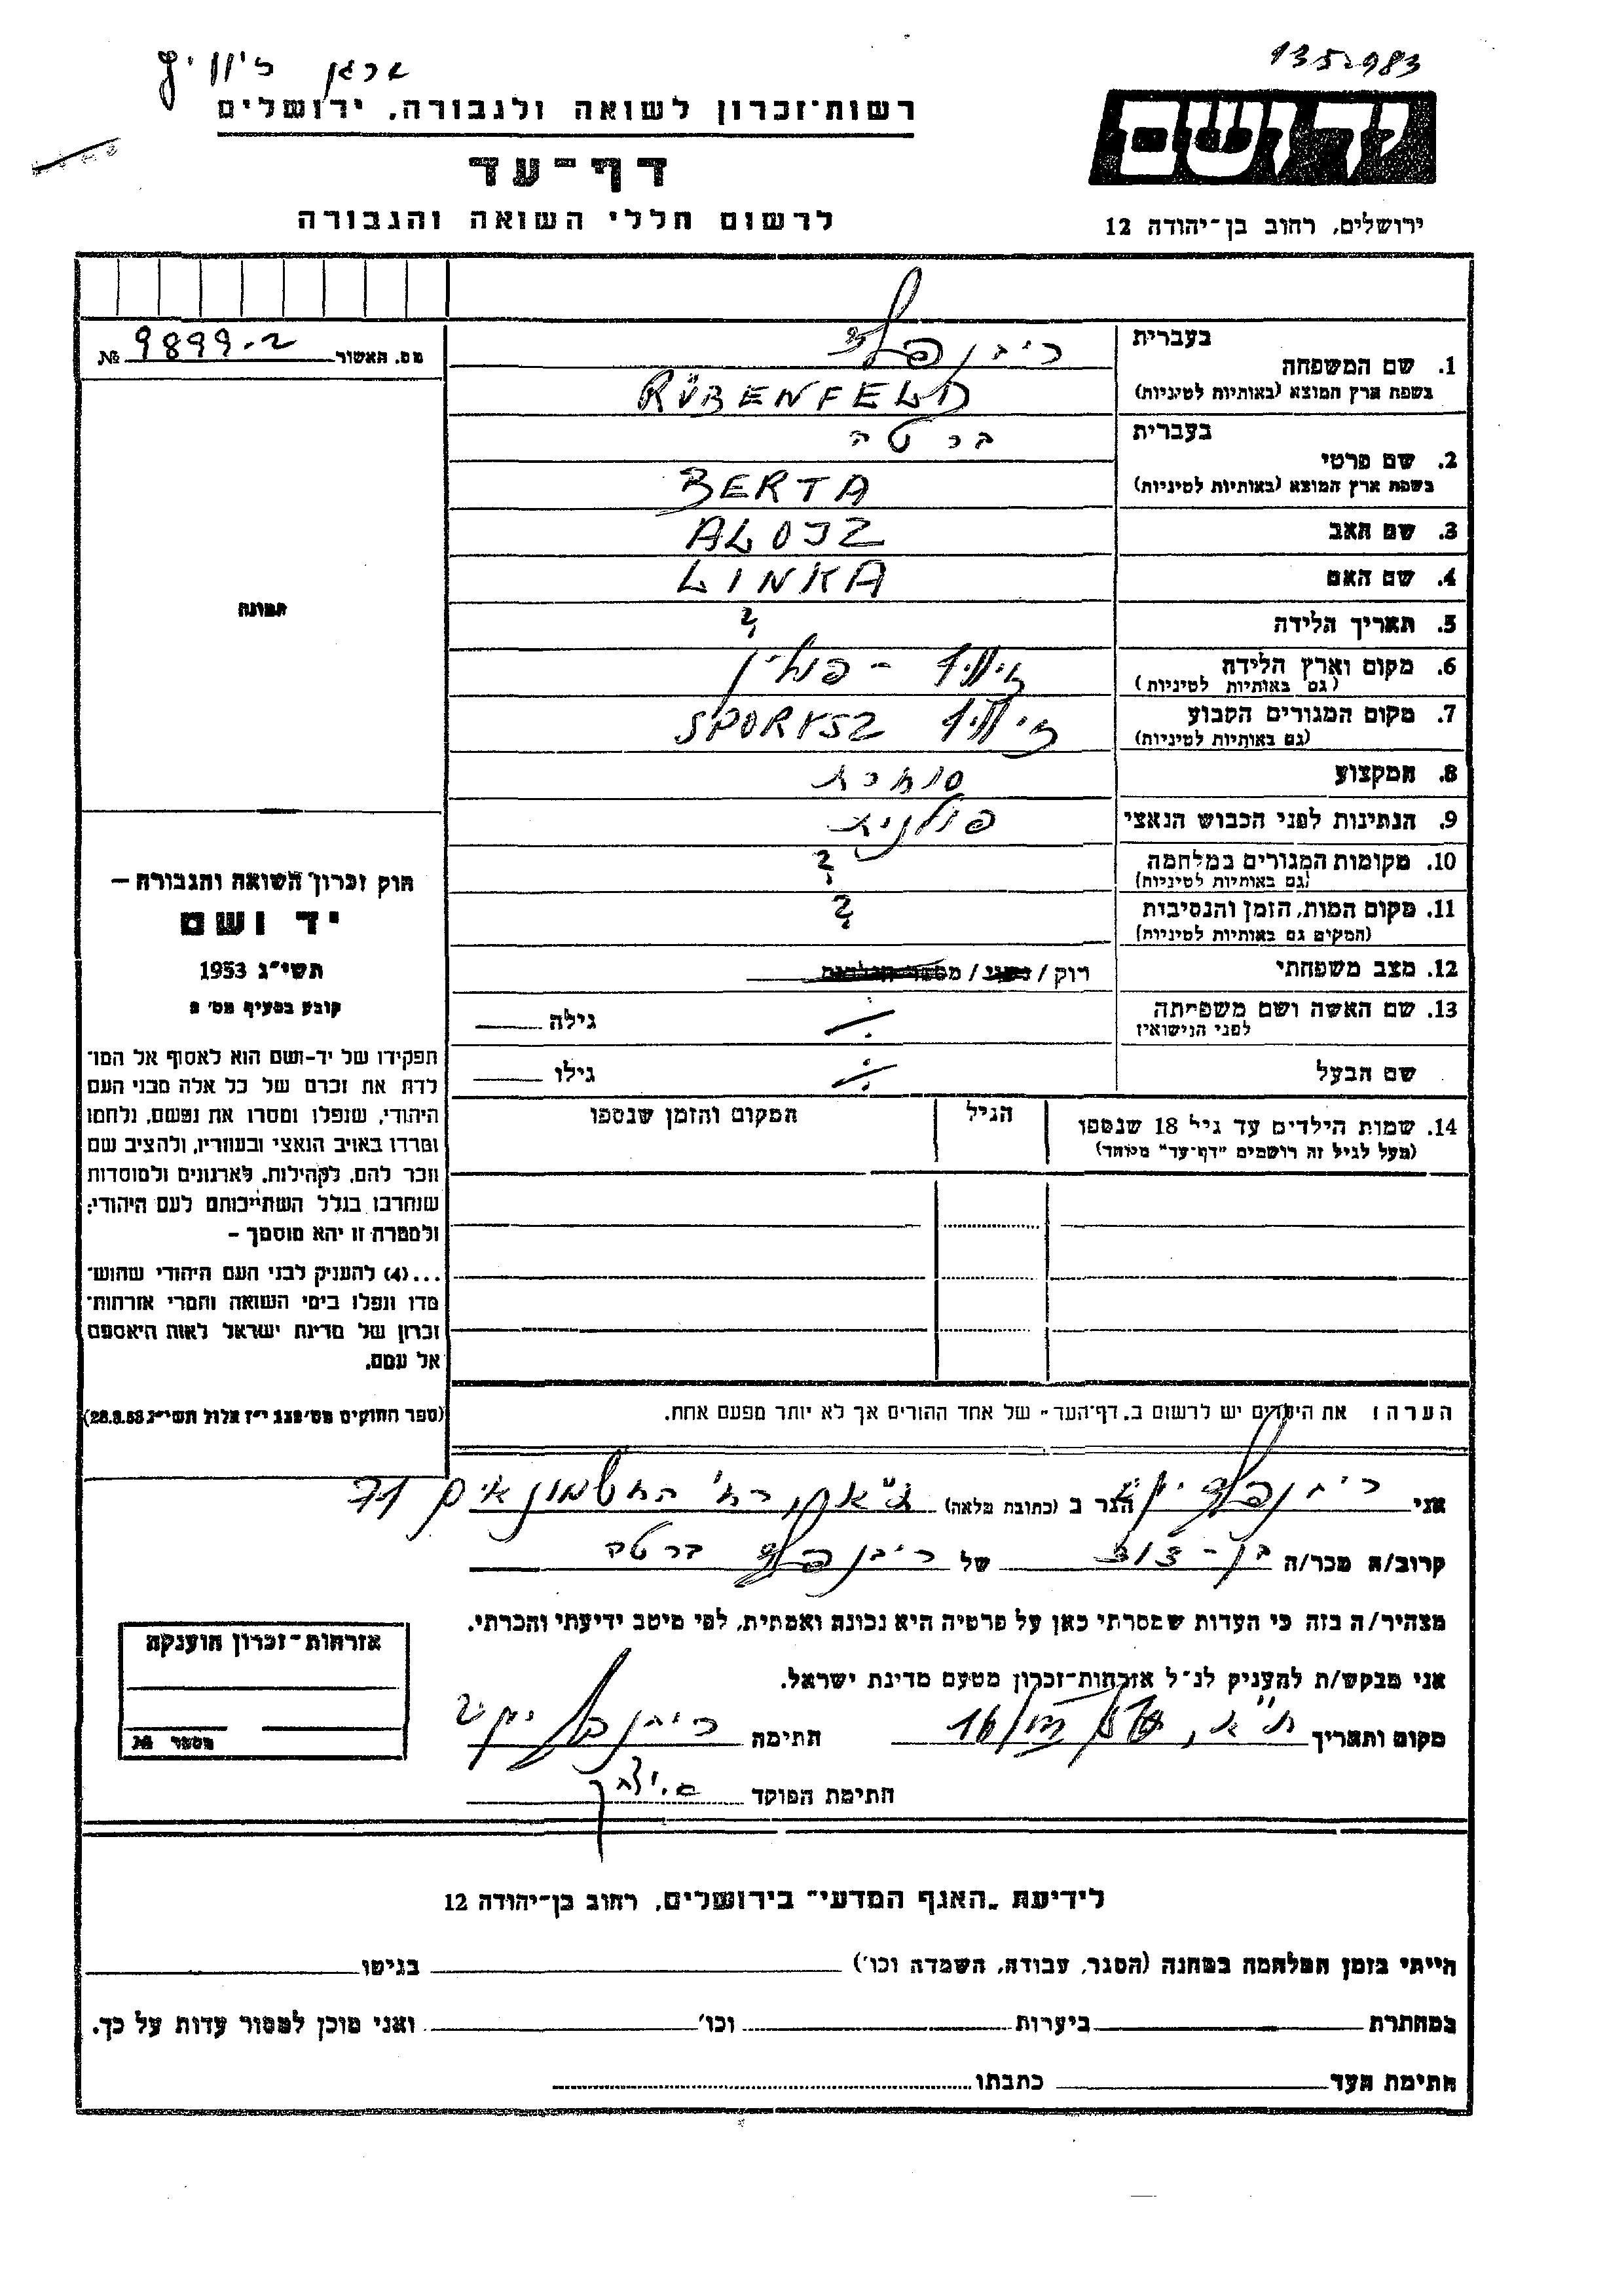 135983
ארגן
רשות־זכרון לשואה ולגבורה, ירושלים
יד ושם
דף־עד
לרשום חללי השואה והגבורה
ירושלים, רחוב בן־יהודה 12
מס. האשור № 9899-2
תמונה
1. שם המשפחה
בעברית
ריבנפלד
בשפת ארץ המוצא (באותיות לטיניות)
RÜBENFELD
2. שם פרטי
בעברית
ברטה
בשפת ארץ המוצא (באותיות לטיניות)
BERTA
3. שם האב
ALOJZ
4. שם האם
LINKA
5. תאריך הלידה
?
6. מקום וארץ הלידה
(גם באותיות לטיניות)
- פולין
7. מקום המגורים הקבוע
(גם באותיות לטיניות)
SPORYSZ
8. המקצוע
סוחרת
9. הנתינות לפני הכבוש הנאצי
פולנית
10. מקומות המגורים במלחמה
(גם באותיות לטיניות)
?
11. מקום המות, הזמן והנסיבות
(המקום גם באותיות לטיניות)
?
12. מצב משפחתי
רוק / נשוי / מספר הילדים
13. שם האשה ושם משפחתה
לפני הנישואין
גילה
שם הבעל
גילו
14. שמות הילדים עד גיל 18 שנספו
(מעל לגיל זה רושמים "דף־עד" מיוחד)
הגיל
המקום והזמן שנספו
חוק זכרון השואה והגבורה –
יד ושם
תשי"ג 1953
קובע בסעיף מס' 2
תפקידו של יד-ושם הוא לאסוף אל המו־
לדת את זכרם של כל אלה מבני העם
היהודי, שנפלו ומסרו את נפשם, נלחמו
ומרדו באויב הנאצי ובעוזריו, ולהציב שם
וזכר להם, לקהילות, לארגונים ולמוסדות
שנחרבו בגלל השתייכותם לעם היהודי;
ולמטרה זו יהא מוסמך –
...(4) להעניק לבני העם היהודי שהוש־
מדו ונפלו בימי השואה והמרי אזרחות־
זכרון של מדינת ישראל לאות היאספם
אל עמם.
(ספר החוקים מס' 132 י"ז אלול תשי"ג 28.8.53)
הערה: את הילדים יש לרשום ב„דף־העד" של אחד ההורים אך לא יותר מפעם אחת.
אני ריבנפלד הגר ב (כתובת מלאה) רח' החשמונאים 71
קרוב/ה מכר/ה בן-דוד של ריבנפלד ברטה
מצהיר/ה בזה כי העדות שמסרתי כאן על פרטיה היא נכונה ואמתית, לפי מיטב ידיעתי והכרתי.
אני מבקש/ת להעניק לנ"ל אזרחות־זכרון מטעם מדינת ישראל.
מקום ותאריך ת"א, 16 חתימה ריבנפלד
חתימת הפוקד
אזרחות־זכרון הוענקה
מספר №
לידיעת „האגף המדעי" בירושלים, רחוב בן־יהודה 12
הייתי בזמן המלחמה במחנה (הסגר, עבודה, השמדה וכו') בגיטו
במחתרת ביערות וכו' ואני מוכן למסור עדות על כך.
חתימת העד כתבתו